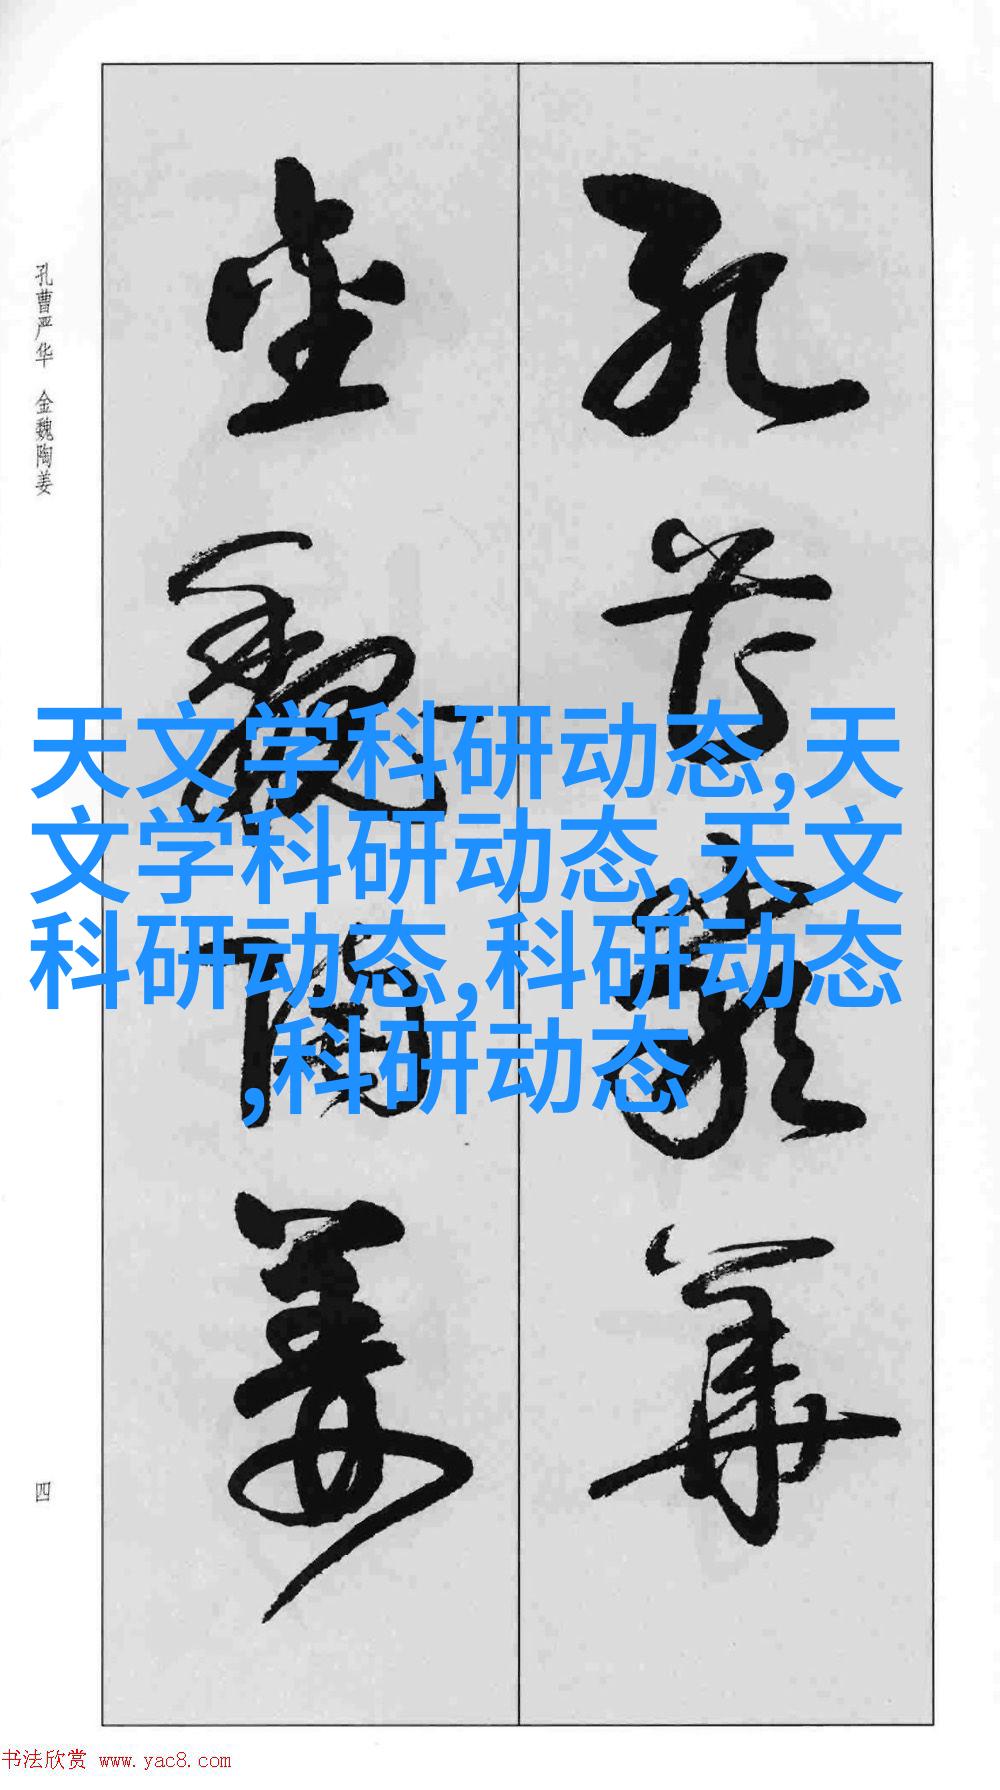 孔曹严华
金魏陶姜
孔曹严华 金魏陶姜
四
天文学科研动态,天
文学科研动态,天文
科研动态,科研动态
,科研动态
书法欣赏 www.yac8.com